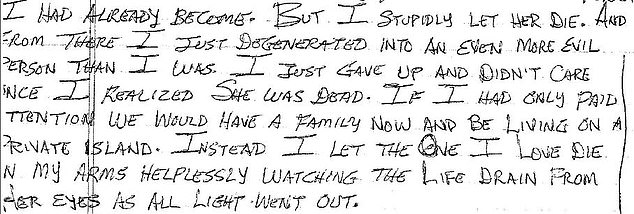 I HAD ALREADY BECOME. BUT I STUPIDLY LET HER DIE. AND
FROM THERE I JUST DEGENERATED INTO AN EVEN MORE EVIL
PERSON THAN I WAS. I JUST GAVE UP AND DIDN'T CARE
INCE I REALIZED SHE WAS DEAD. IF I HAD ONLY PAID
TTENTION WE WOULD HAVE A FAMILY NOW AND BE LIVING ON A
PRIVATE ISLAND. INSTEAD I LET THE ONE I LOVE DIE
N MY ARMS HELPLESSLY WATCHING THE LIFE DRAIN FROM
HER EYES AS ALL LIGHT WENT OUT.